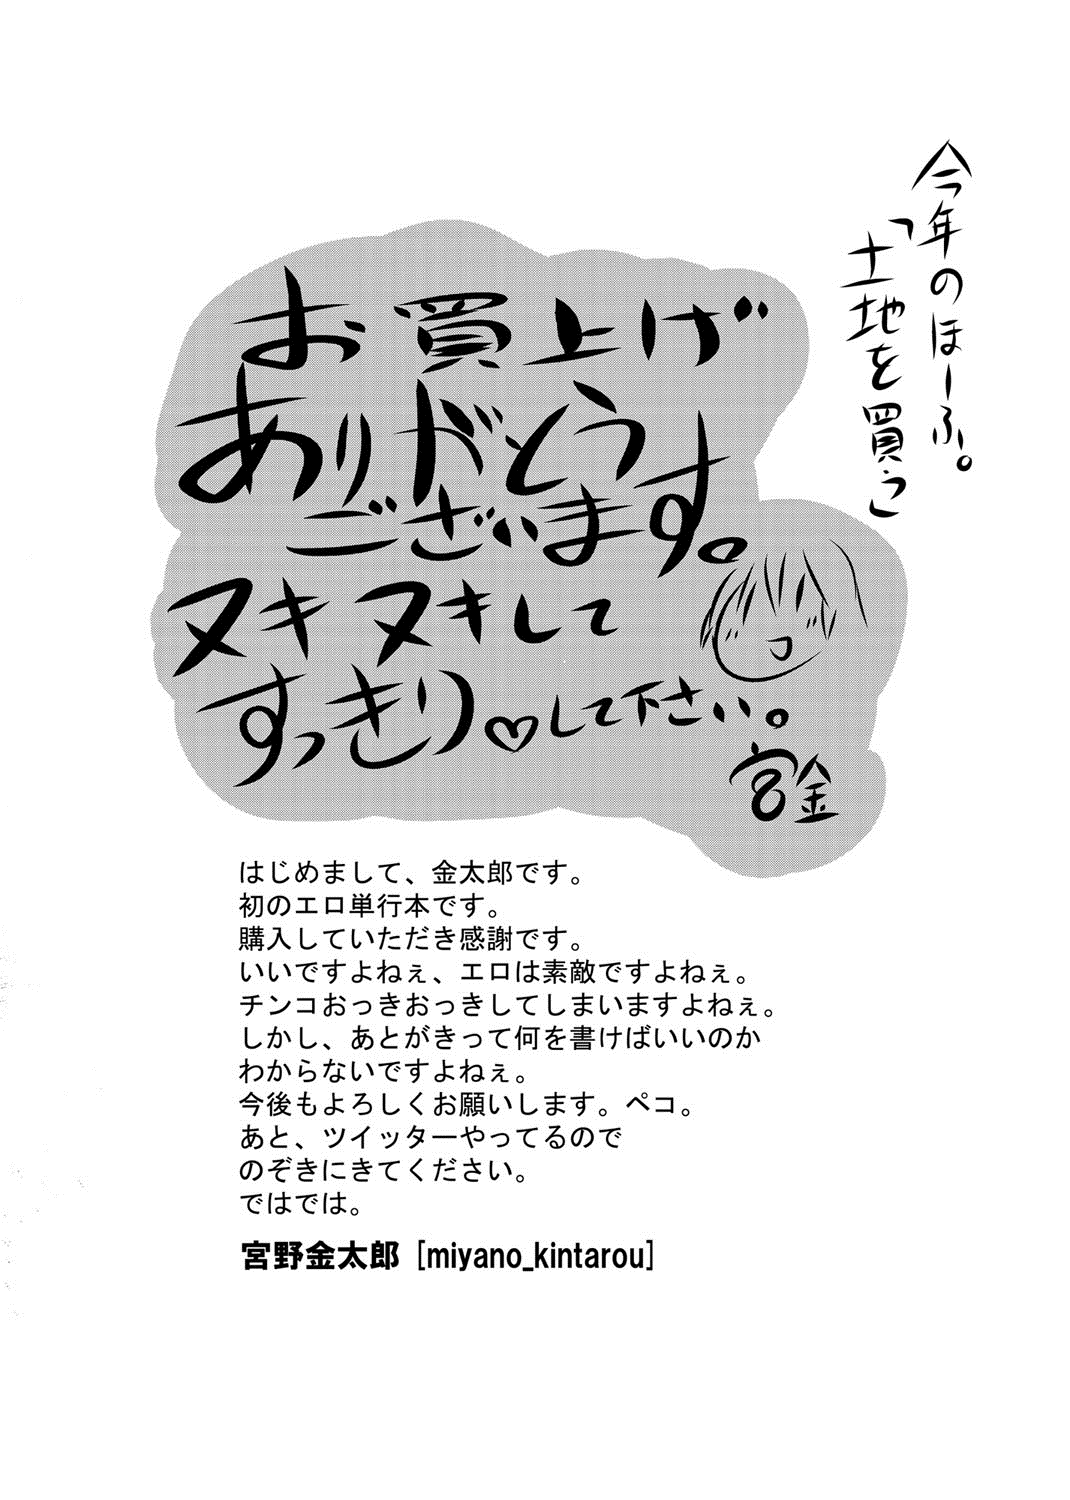 今年のほーふ。
「土地を買う」
お買上げ
ありがとう
ございます。
ヌキヌキして
すっきり♡して下さい。
宮金
はじめまして、金太郎です。
初のエロ単行本です。
購入していただき感謝です。
いいですよねぇ、エロは素敵ですよねぇ。
チンコおっきおっきしてしまいますよねぇ。
しかし、あとがきって何を書けばいいのか
わからないですよねぇ。
今後もよろしくお願いします。ペコ。
あと、ツイッターやってるので
のぞきにきてください。
ではでは。
宮野金太郎 [miyano_kintarou]